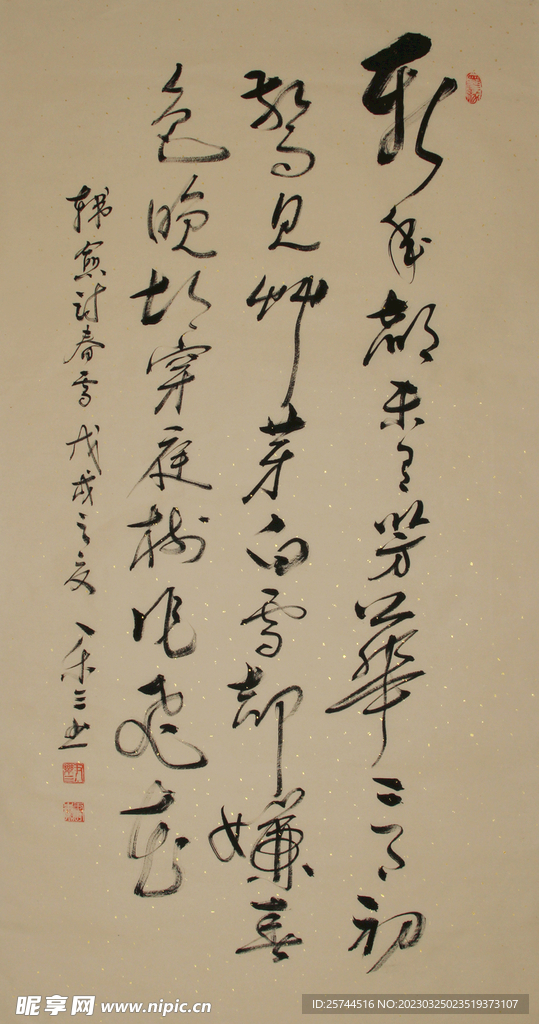 新年都未有芳華二月初
驚見草芽白雪却嫌春
色晚故穿庭樹作飛花
韓愈詩春雪 戊戌之夏 一禾三书
昵享网 www.nipic.cn
ID:25744516 NO:20230325023519373107